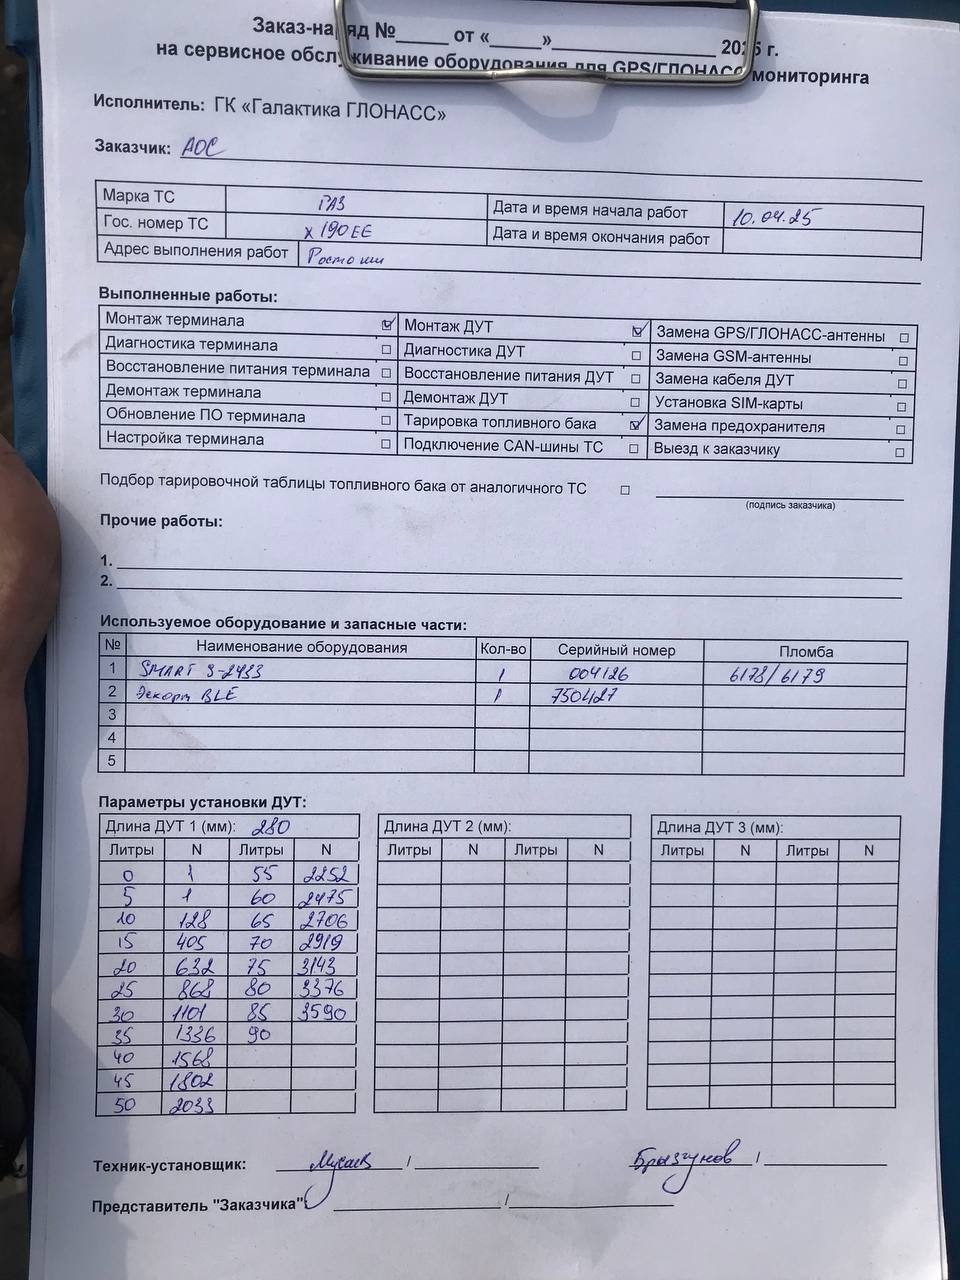 Заказ-наряд №_____ от «_____»_______________ 2025 г.
на сервисное обслуживание оборудования для GPS/ГЛОНАСС мониторинга
Исполнитель: ГК «Галактика ГЛОНАСС»
Заказчик: АОС
Марка ТС ГАЗ Дата и время начала работ 10.04.25
Гос. номер ТС х190ЕЕ Дата и время окончания работ
Адрес выполнения работ
Выполненные работы:
Монтаж терминала ☑ Монтаж ДУТ ☑ Замена GPS/ГЛОНАСС-антенны ☐
Диагностика терминала ☐ Диагностика ДУТ ☐ Замена GSM-антенны ☐
Восстановление питания терминала ☐ Восстановление питания ДУТ ☐ Замена кабеля ДУТ ☐
Демонтаж терминала ☐ Демонтаж ДУТ ☐ Установка SIM-карты ☐
Обновление ПО терминала ☐ Тарировка топливного бака ☑ Замена предохранителя ☐
Настройка терминала ☐ Подключение CAN-шины ТС ☐ Выезд к заказчику ☐
Подбор тарировочной таблицы топливного бака от аналогичного ТС ☐
(подпись заказчика)
Прочие работы:
1.
2.
Используемое оборудование и запасные части:
№ Наименование оборудования Кол-во Серийный номер Пломба
1 SMART S-2433 1 004126 6178/6179
2 Эскорт BLE 1 750427
3
4
5
Параметры установки ДУТ:
Длина ДУТ 1 (мм): 280 Длина ДУТ 2 (мм): Длина ДУТ 3 (мм):
Литры N Литры N Литры N Литры N Литры N Литры N
0 1 55 2252
5 1 60 2475
10 128 65 2706
15 405 70 2919
20 632 75 3143
25 868 80 3376
30 1101 85 3590
35 1336 90
40 1568
45 1802
50 2033
Техник-установщик: Мусаев / Брызгунов /
Представитель "Заказчика": /